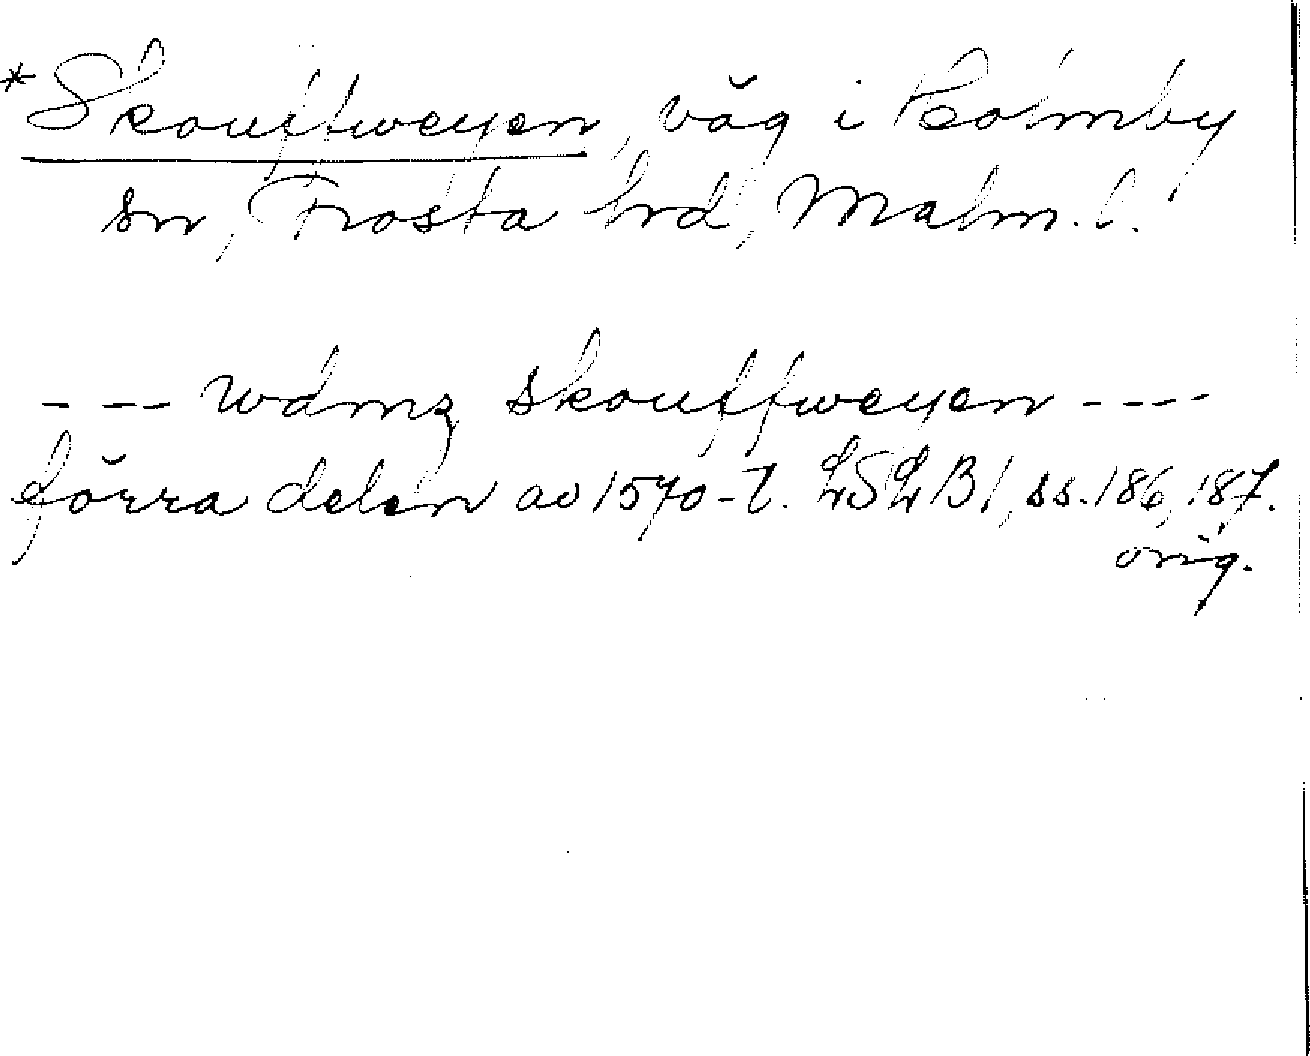 *Skouffweyen, väg i Holmby
sn, Frosta hrd, Malm. l.
--- wdmz skouffweyen ----
förra delen av 1570-t. LSLB1, ss. 186, 187.
orig.